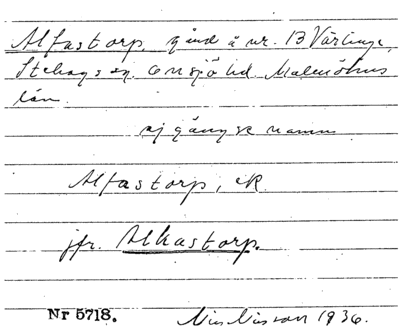 Alfastorp, gård å nr. 13 Värlinge,
Stehags sn. Onsjö hd Malmöhus
län.
ej gängse namn
Alfastorp, R
jfr. Alkastorp.
Nr 5718. Nils Nilsson 1936.